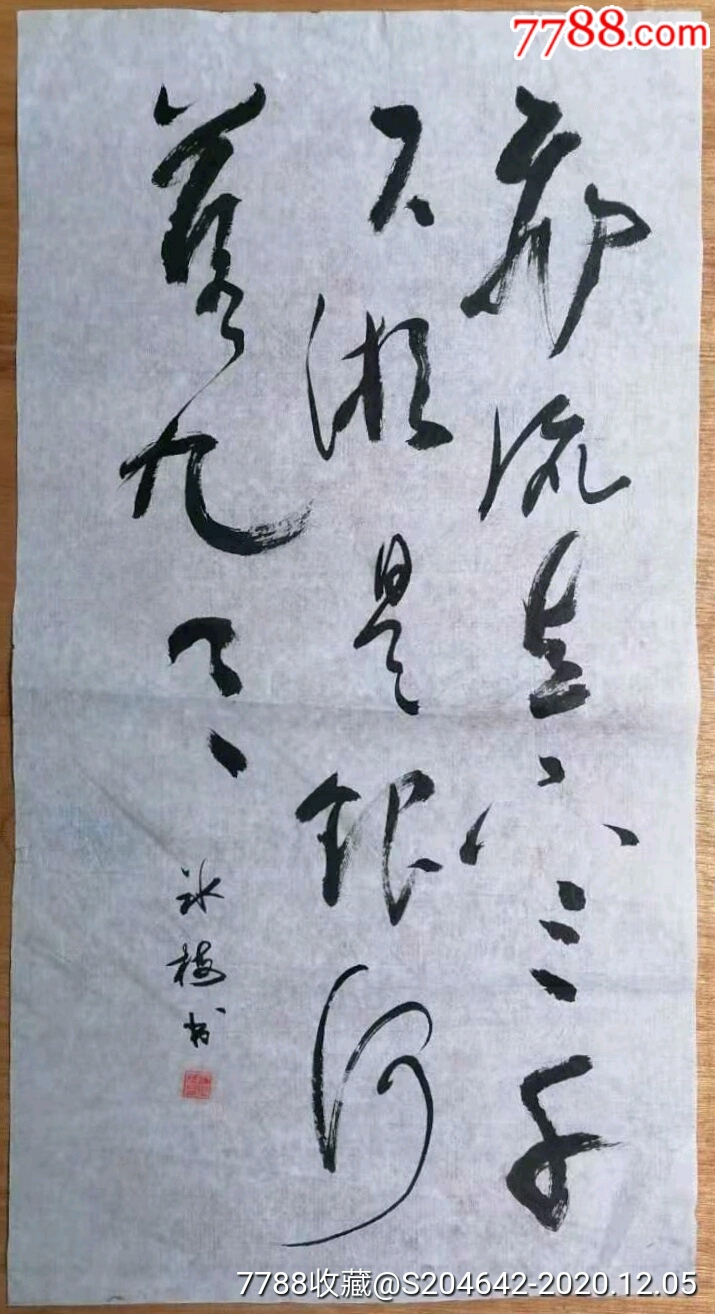 7788.com
飛流直下三千
尺疑是銀河
落九天
冰梅书
7788收藏@S204642-2020.12.05